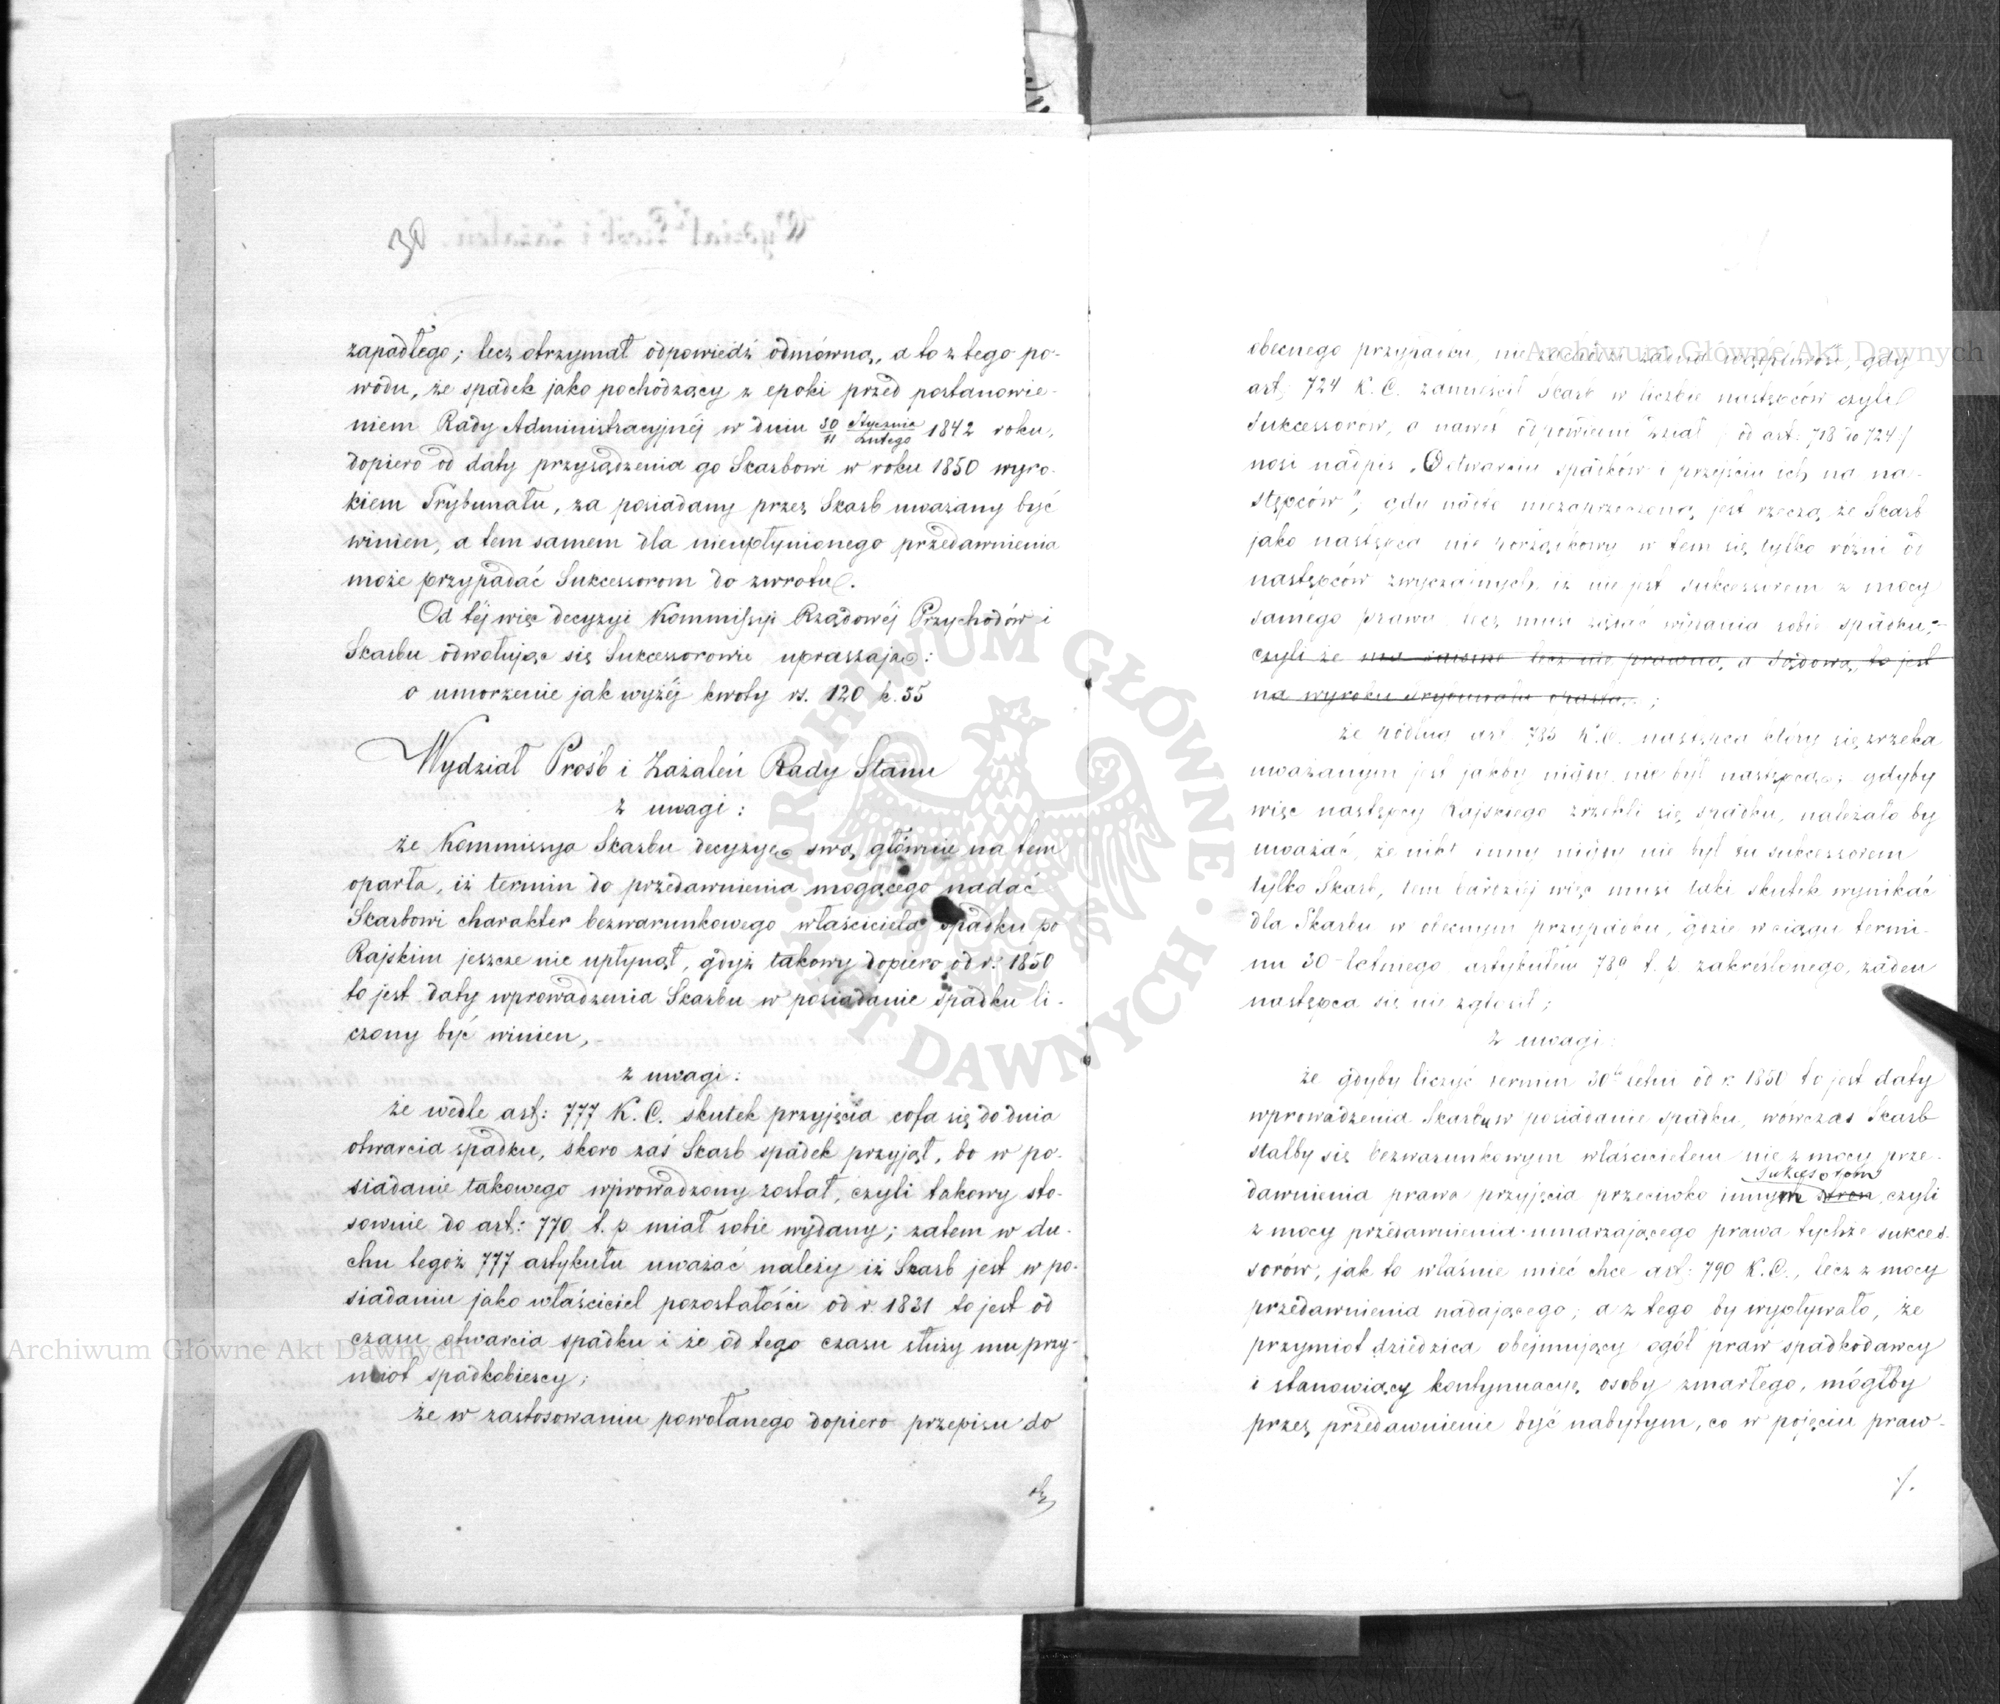 zapadłego; lecz otrzymał odpowiedź odmówną, a to z tego po-
wodu, że spadek jako pochodzący z epoki przed postanowie-
niem Rady Administracyjnéj w dniu 30/11 Stycznia/Lutego 1842 roku,
dopiero od daty przysądzenia go Skarbowi w roku 1850 wyro-
kiem Trybunału, za posiadany przez Skarb uważany być
winien, a tem samem dla nieupłynionego przedawnienia
może przypadać Sukcessorom do zwrotu.
Od téj więc decyzyi Kommissyi Rządowéj Przychodów i
Skarbu odwołując się Sukcessorowie upraszają:
o umorzenie jak wyżéj kwoty rs. 120 k. 55
Wydział Próśb i Zażaleń Rady Stanu
z uwagi:
że Kommissya Skarbu decyzyę swą głównie na tem
oparła, iż termin do przedawnienia mogącego nadać
Skarbowi charakter bezwarunkowego właściciela spadku po
Rajskim jeszcze nie upłynął, gdyż takowy dopiero od r. 1850
to jest daty wprowadzenia Skarbu w posiadanie spadku li-
czony być winien,
z uwagi:
że wedle art: 777 K. C. skutek przyjęcia cofa się do dnia
otwarcia spadku, skoro zaś Skarb spadek przyjął, bo w po-
siadanie takowego wprowadzony został, czyli takowy sto-
sownie do art: 770 t. p. miał sobie wydany; zatem w du-
chu tegoż 777 artykułu uważać należy iż Skarb jest w po-
siadaniu jako właściciel pozostałości od r. 1831 to jest od
czasu otwarcia spadku i że od tego czasu służy mu przy-
miot spadkobiercy;
że w zastosowaniu powołanego dopiero przepisu do
ob
obecnego przypadku, nie zachodzi żadna wątpliwość, gdy
art: 724 K. C. zamieścił Skarb w liczbie następców czyli
Sukcessorów, a nawet odpowiedni Dział od art: 718 do 724
nosi nadpis „Otwarciu spadków i przejściu ich na na-
stępców"; gdy nadto niezaprzeczoną jest rzeczą, że Skarb
jako następca nie porządkowy w tem się tylko różni od
następców zwyczajnych, iż nie jest sukcessorem z mocy
samego prawa lecz musi żądać wydania sobie spadku;
czyli że ma lecz nie prawną, a Sądową, to jest
na wyroku Trybunału opartą;
że podług art 785 K. C. następca który się zrzeka
uważanym jest jakby nigdy nie był następcą; gdyby
więc następcy Rajskiego zrzekli się spadku, należało by
uważać, że nikt inny nigdy nie był tu sukcessorem
tylko Skarb, tem bardziéj więc musi taki skutek wynikać
dla Skarbu w obecnym przypadku, gdzie w ciągu termi-
nu 30-letniego artykułem 789 t. p. zakreślonego, żaden
następca się nie zgłosił;
z uwagi:
że gdyby liczyć termin 30to letni od r. 1850 to jest daty
wprowadzenia Skarbu w posiadanie spadku, wówczas Skarb
stałby się bezwarunkowym właścicielem nie z mocy prze-
sukcessorom
dawnienia prawa przyjęcia przeciwko innym stron, czyli
z mocy przedawnienia umarzającego prawa tychże sukces-
sorów, jak to właśnie mieć chce art: 790 K. C., lecz z mocy
przedawnienia nadającego; a z tego by wypływało, że
przymiot dziedzica obejmujący ogół praw spadkodawcy
i stanowiący kontynuacyę osoby zmarłego, mógłby
przez przedawnienie być nabytym, co w pojęciu praw-
Archiwum Główne Akt Dawnych
Archiwum Główne Akt Dawnych
ARCHIWUM GŁÓWNE AKT DAWNYCH